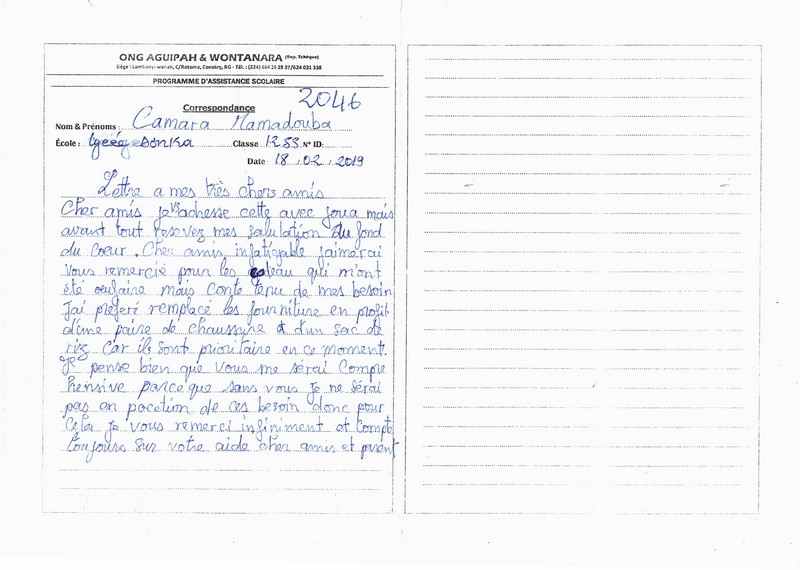 ONG AGUIPAH & WONTANARA (Rep. Tchèque)
Siège : Lambanyi-wanah, C/Ratoma, Conakry, RG - Tél. : (224) 664 28 29 37/624 031 338
PROGRAMME D'ASSISTANCE SCOLAIRE
2046
Correspondance
Nom & Prénoms : Camara Mamadouba
École : Sonka Classe 12SS N° ID:
Date 18 / 02 / 2019
Lettre a mes très chers amis
Cher amis je vs adresse cette avec joua mais
avant tout resevez mes salutation du fond
du Cœur . Cher amis infatigable jaimerai
vous remercié pour les cadeau qui m'ont
été oufaire mais conte tenu de mes besoin
J'ai préferé remplacé les fourniture en profit
d'une paire de chaussure et d'un sac de
riz Car ils sont prioritaire en ce moment.
Je pense bien que vous me serai Compre
hensive parce que sans vous je ne sérai
pas en pocétion de ces besoin donc pour
Cela je vous remerci infiniment et compte
toujours sur votre aide cher amis et parent